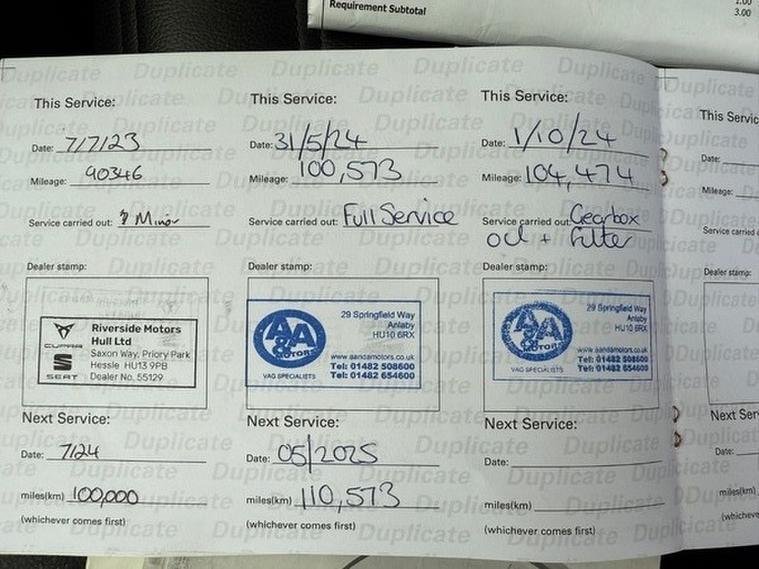 Requirement Subtotal
3.00
This Service:
Date: 7/7/23
Mileage: 90346
Service carried out: Minor
Dealer stamp:
CUPRA
SEAT
Riverside Motors
Hull Ltd
Saxon Way, Priory Park
Hessle HU13 9PB
Dealer No. 55129
Next Service:
Date: 7/24
miles(km) 100,000
(whichever comes first)
This Service:
Date: 31/5/24
Mileage: 100,573
Service carried out: Full Service
Dealer stamp:
A&A
MOTORS
VAG SPECIALISTS
29 Springfield Way
Anlaby
HU10 6RX
www.aandamotors.co.uk
Tel: 01482 508600
Tel: 01482 654600
Next Service:
Date: 05/2025
miles(km) 110,573
(whichever comes first)
This Service:
Date: 1/10/24
Mileage: 104,474
Service carried out: Gearbox
oil + Filter
Dealer stamp:
A&A
MOTORS
VAG SPECIALISTS
29 Springfield Way
Anlaby
HU10 6RX
www.aandamotors.co.uk
Tel: 01482 508600
Tel: 01482 654600
Next Service:
Date:
miles(km)
(whichever comes first)
This Servic
Date:
Mileage:
Service carried o
Dealer stamp:
Next Ser
Date:
miles(km)
(whichever